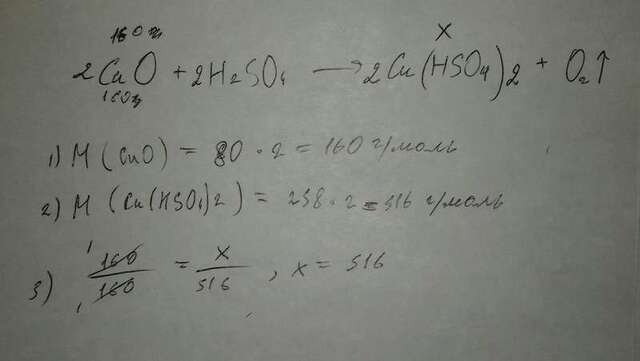 160 г x
2CuO + 2H2SO4 → 2Cu(HSO4)2 + O2↑
160г
1) M (CuO) = 80 · 2 = 160 г/моль
2) M (Cu(HSO4)2) = 258 · 2 = 516 г/моль
3) 160/160 = x/516, x = 516
1
1